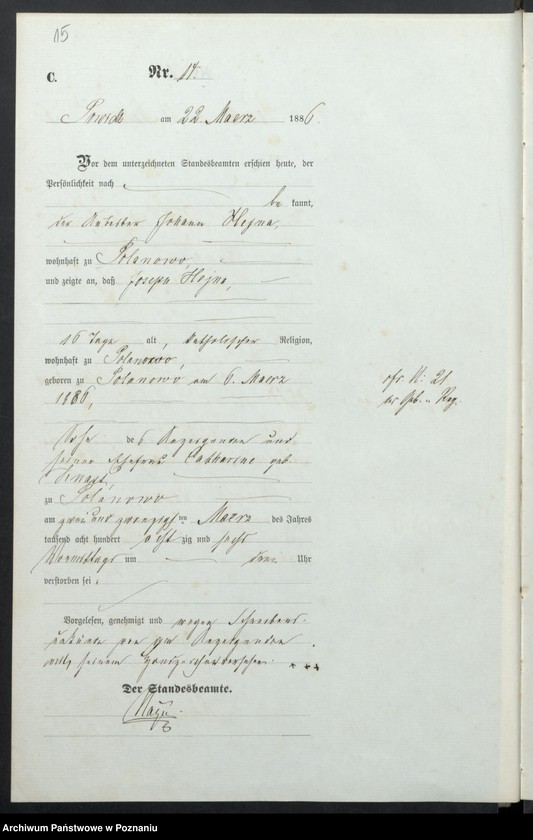 15
C.
Nr. 17.
am 22 Maerz 1886.
Vor dem unterzeichneten Standesbeamten erschien heute, der
Persönlichkeit nach
be kannt,
der Arbeiter Johann Hojna,
wohnhaft zu Polanowo,
und zeigte an, daß Joseph Hojna,
16 Tage alt, katholischer Religion,
wohnhaft zu Polanowo,
geboren zu Polanowo am 6. Maerz
1886,
Sohn des Anzeigenden und
seiner Ehefrau Catharine geb.
zu Polanowo
am zwei und zwanzigsten Maerz des Jahres
tausend acht hundert acht zig und sechs
Vormittags um drei Uhr
verstorben sei.
Vorgelesen, genehmigt und wegen Schreibens-
unkunde von dem Anzeigenden
mit seinem Handzeichen versehen. +++
Der Standesbeamte.
cfr N: 21
Geb. Reg.
Archiwum Państwowe w Poznaniu